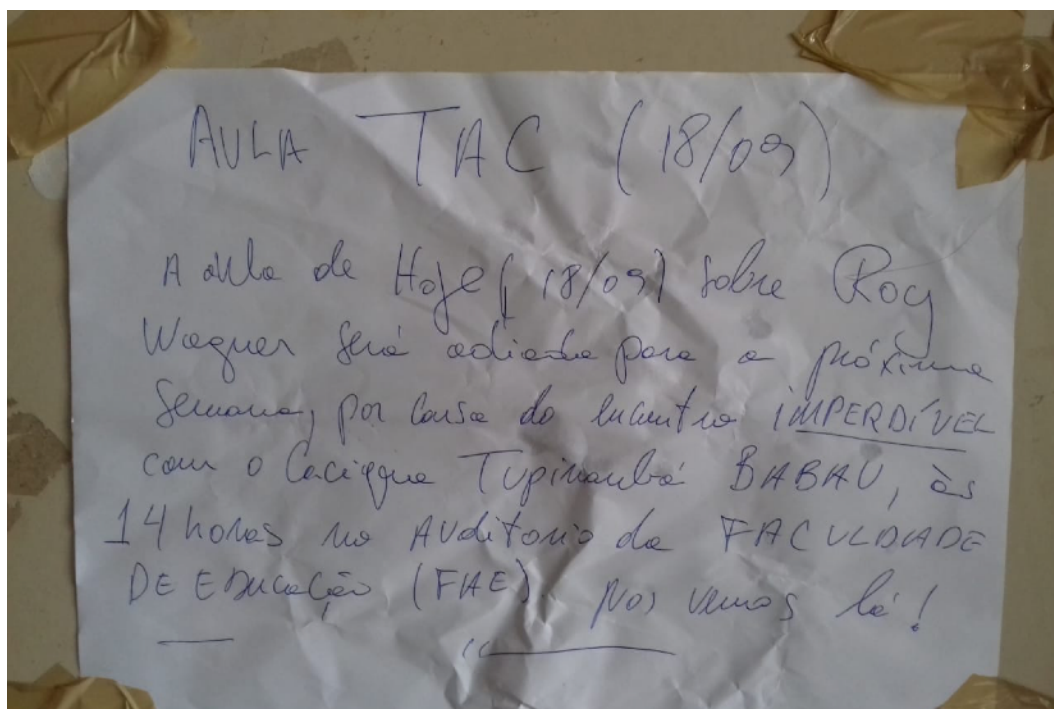 AULA TAC (18/09)
A aula de Hoje (18/09) sobre Roy
Wagner será adiada para a próxima
semana, por causa do encontro IMPERDÍVEL
com o Cacique Tupinambá BABAU, às
14 horas no AUditorio da FACULDADE
DE EDucação (FAE). Nos vemos lá!